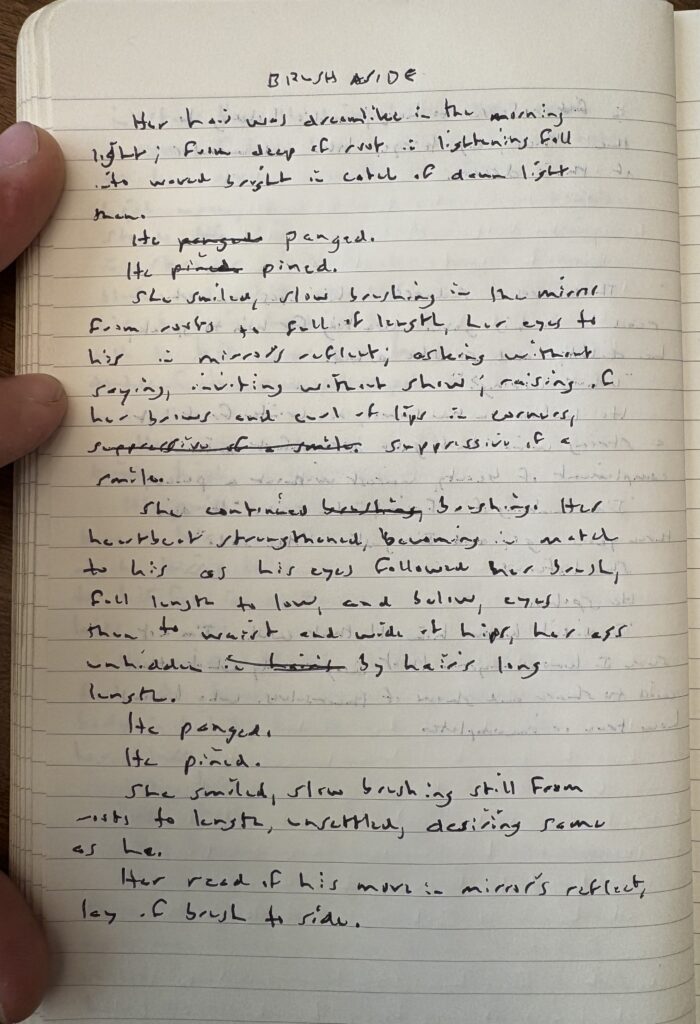 BRUSH ASIDE
Her hair was dreamlike in the morning
light; from deep of root in lightening fall
into waved bright in catch of dawn light
then.
He panged panged.
He pined pined.
She smiled, slow brushing in the mirror
from roots to full of length, her eyes to
his in mirror's reflect; asking without
saying, inviting without show; raising of
her brows and curl of lips in corners,
suppressive of a smile. suppressive of a
smile.
She continued brushing, brushing. Her
heartbeat strengthened, becoming in match
to his as his eyes followed her brush,
full length to low, and below, eyes
then to waist and wide of hips, her ass
unhidden in hair's by hair's long
length.
He panged.
He pined.
She smiled, slow brushing still from
roots to length, unsettled, desiring same
as he.
Her read of his move in mirror's reflect,
lay of brush to side.